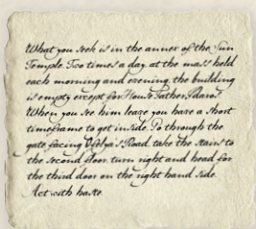 What you seek is in the annex of the Sun
Temple. Two times a day, at the mass held
each morning and evening, the building
is empty except for House Father Adaros.
When you see him leave you have a short
timeframe to get inside. Go through the
gate facing Road, take the stairs to
the second floor, turn right and head for
the third door on the right hand side.
Act with haste.